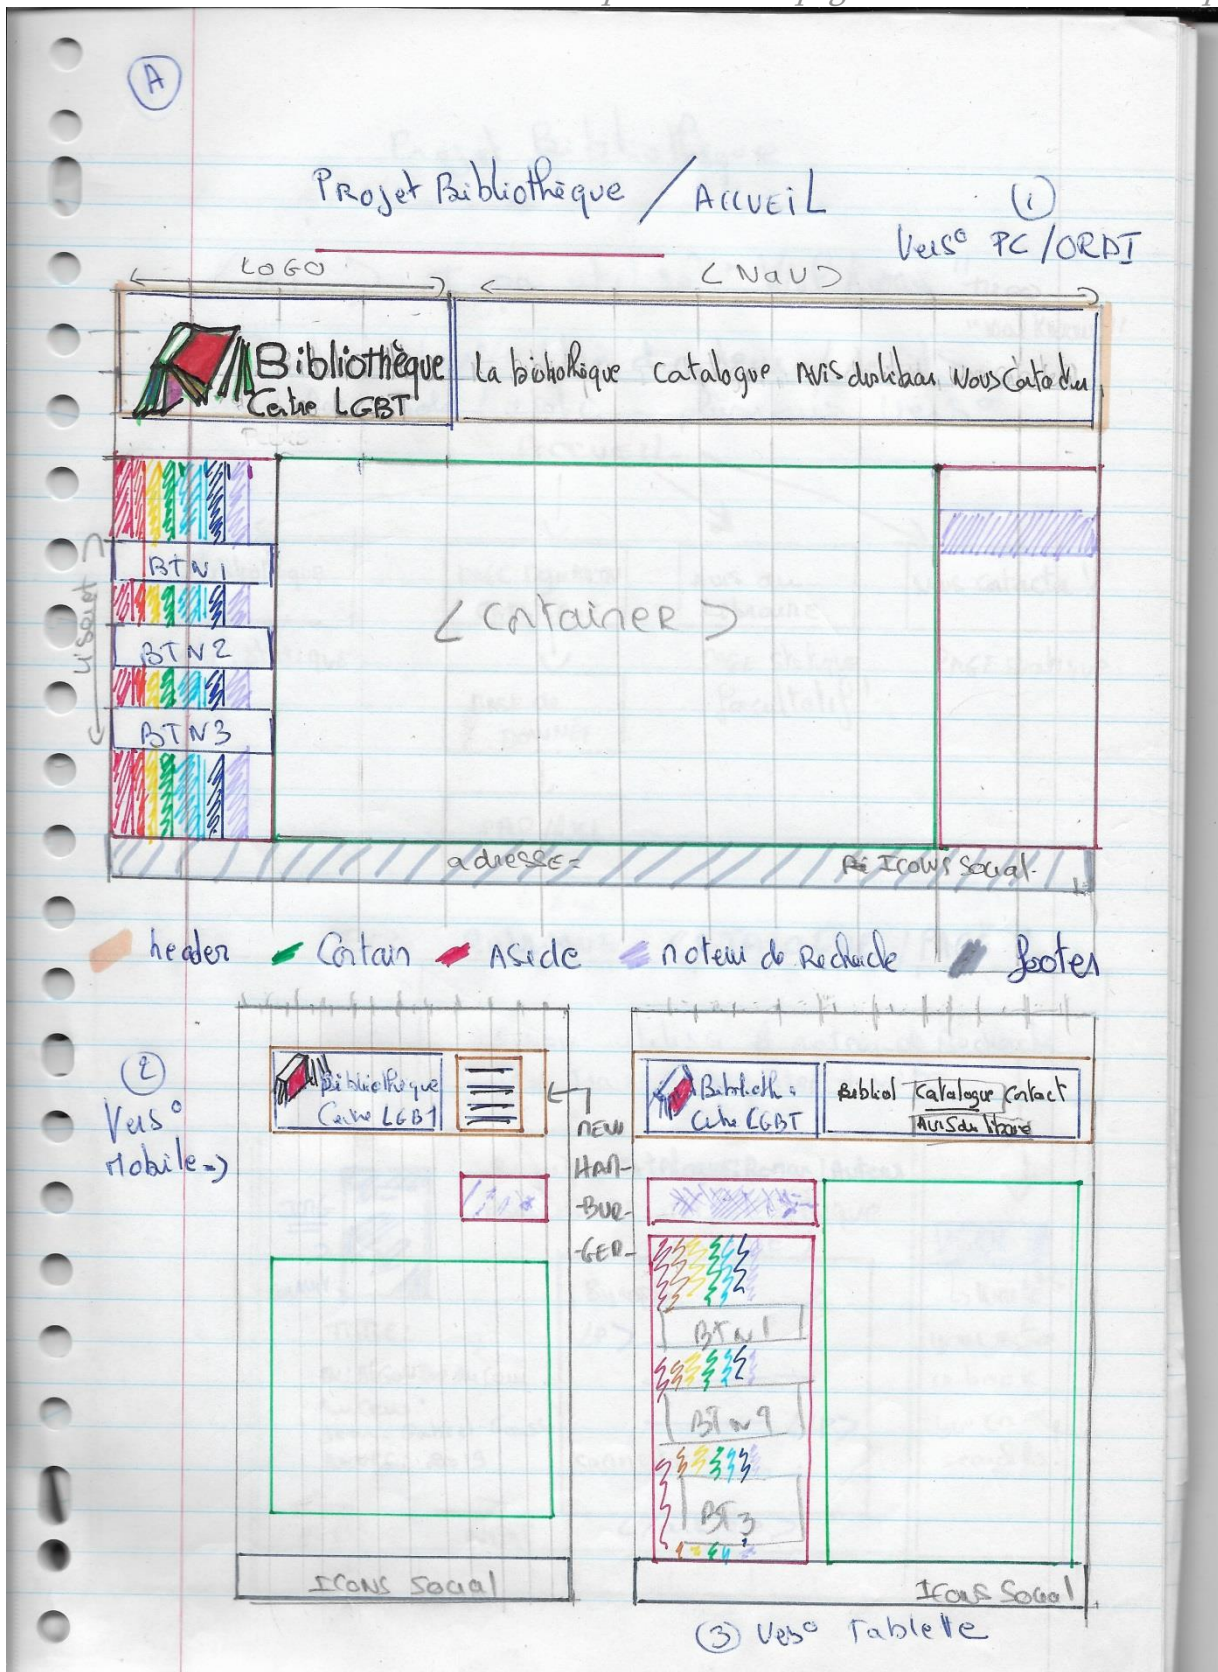 A
Projet Bibliothèque / ACCUEIL
1
Vers° PC/ORDI
LOGO
< Nav >
Bibliothèque
Centre LGBT
La bibliothèque Catalogue Avis du libraire Nous Contacter
BTN1
BTN2
BTN3
< Container >
adresse =
Icons Social
header Contain Aside moteur de Recherche footer
2
Vers°
Mobile =>
Bibliothèque
Centre LGBT
HAM-
-BUR-
-GER-
Biblioth :
Centre LGBT
Bibliot Catalogue Contact
Avis du libraire
BTN1
BT3
Icons Social
Icons Social
3 Vers° Tablette